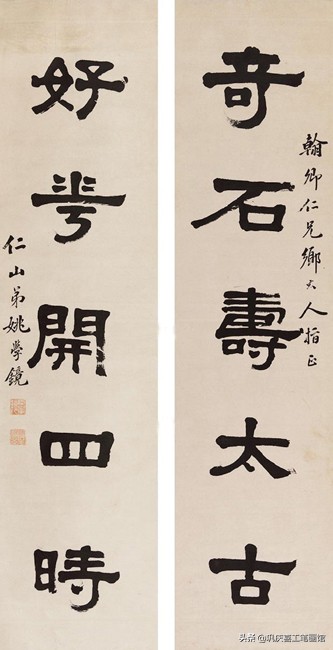 奇石壽太古
翰卿仁兄鄉大人指正
好荂開四時
仁山弟姚學鏡
头条 @巩庆喜工笔画馆